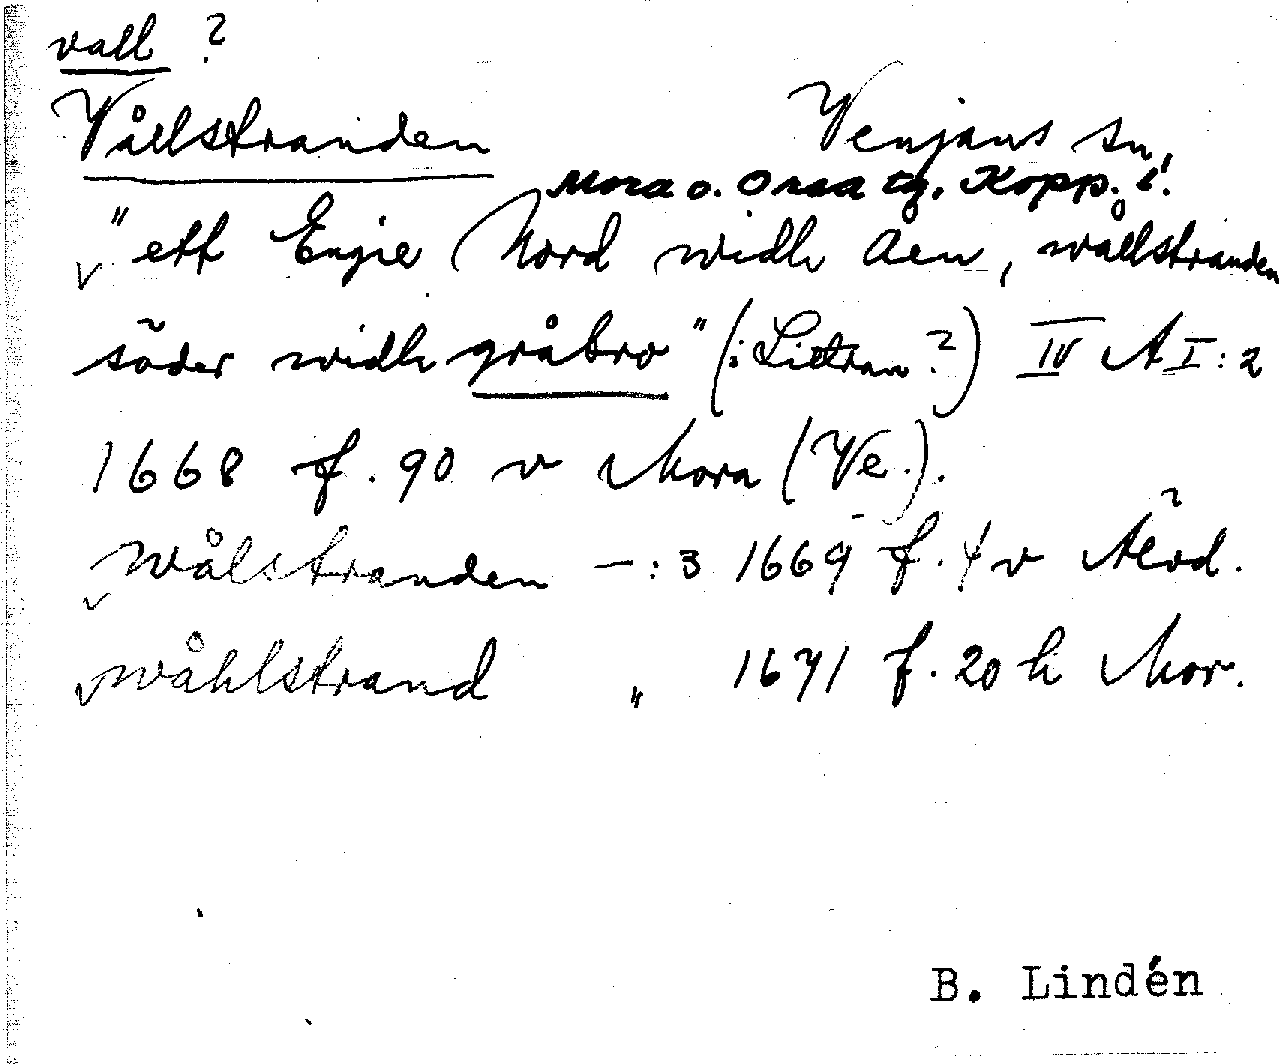 vall ?
Vållstranden Venjans sn,
Mora o. Orsa tg. Kopp. l.
"ett Engie Nord widh Åen, wållstranden
söder widh gråbro" (: Littran?) IV A I: 2
1668 f. 90 v Mora (Ve.).
wålstranden — : 3 1669 f. 4 v Älvd.
wåhlstrand " 1671 f. 20 h Mor.
B. Lindén